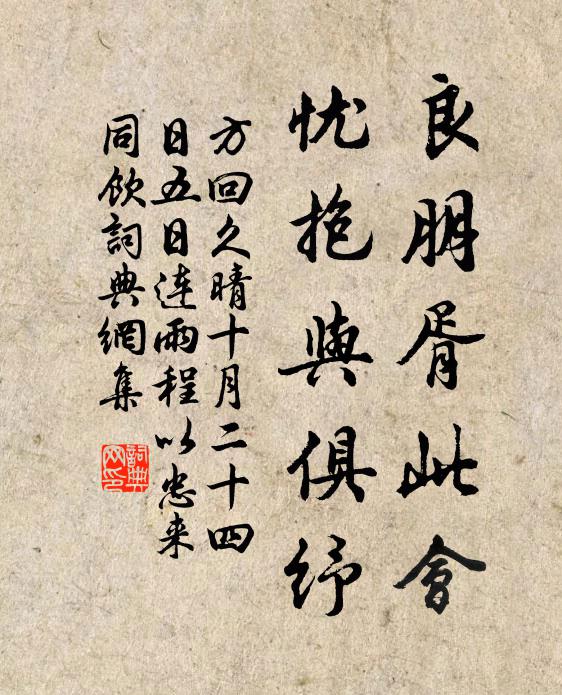 良朋胥此會
忧抱與俱纾
方回久晴十月二十四
日五日连雨程以忠来
同飲詞典網集
詞典
网印